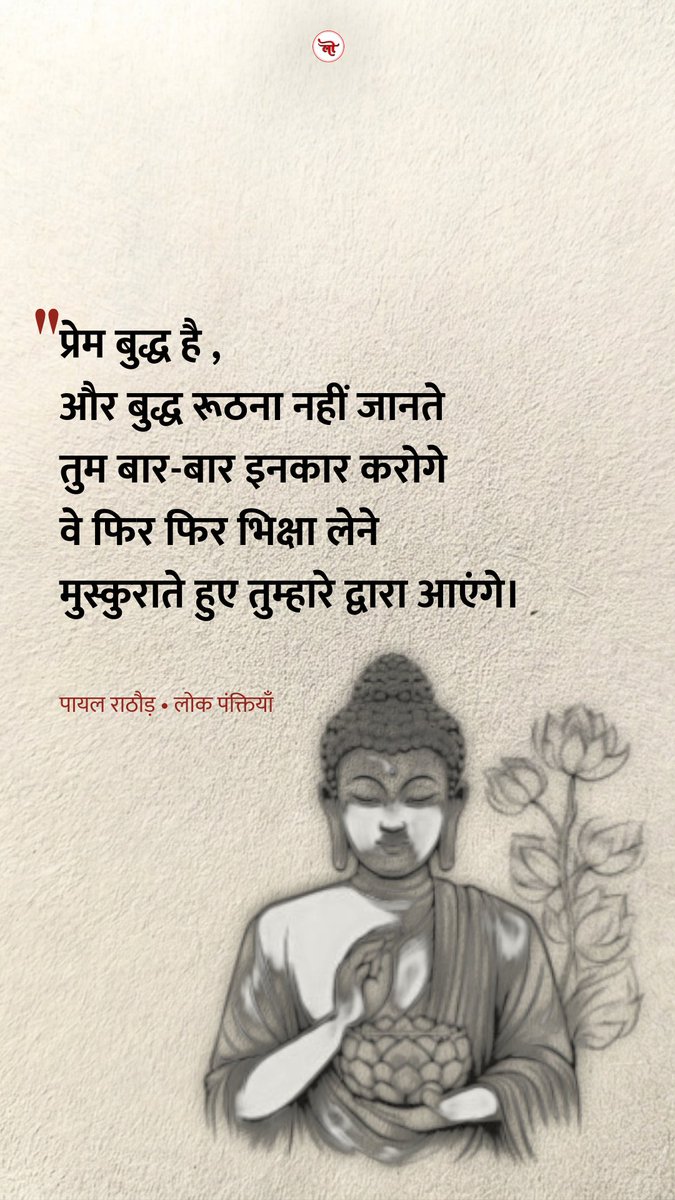 लो
"प्रेम बुद्ध है ,
और बुद्ध रूठना नहीं जानते
तुम बार-बार इनकार करोगे
वे फिर फिर भिक्षा लेने
मुस्कुराते हुए तुम्हारे द्वारा आएंगे।
पायल राठौड़ • लोक पंक्तियाँ